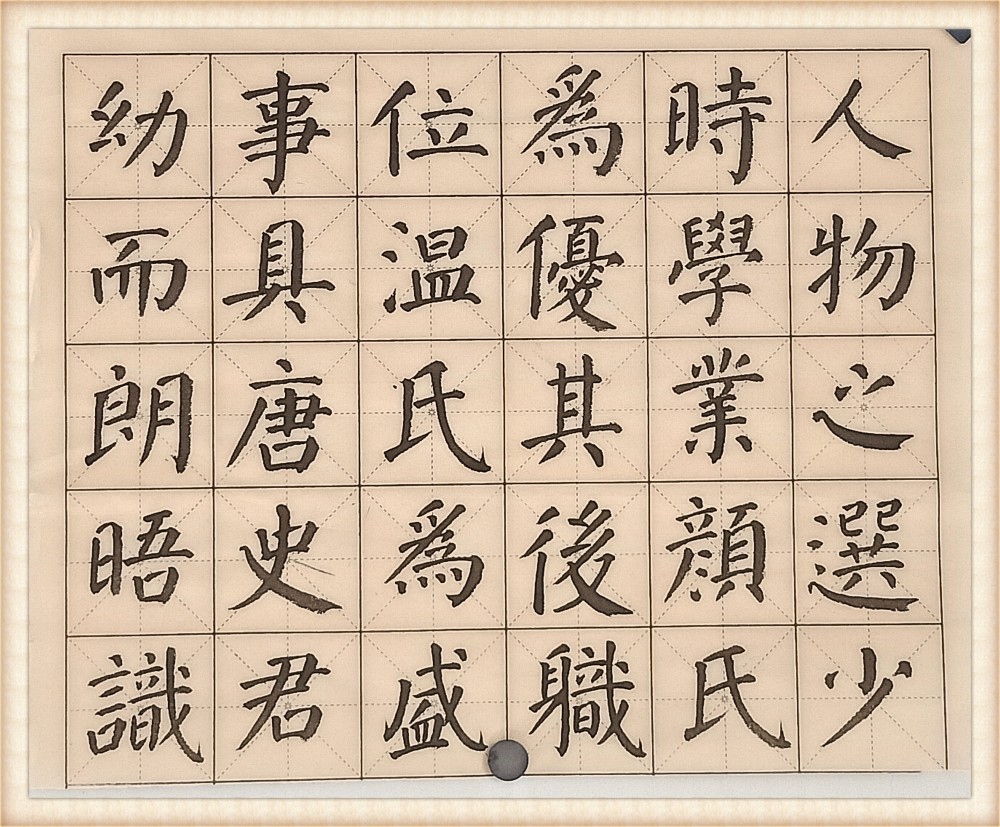 人物之選少
時學業顔氏
爲優其後軄
位温氏爲盛
事具唐史君
幼而朗晤識